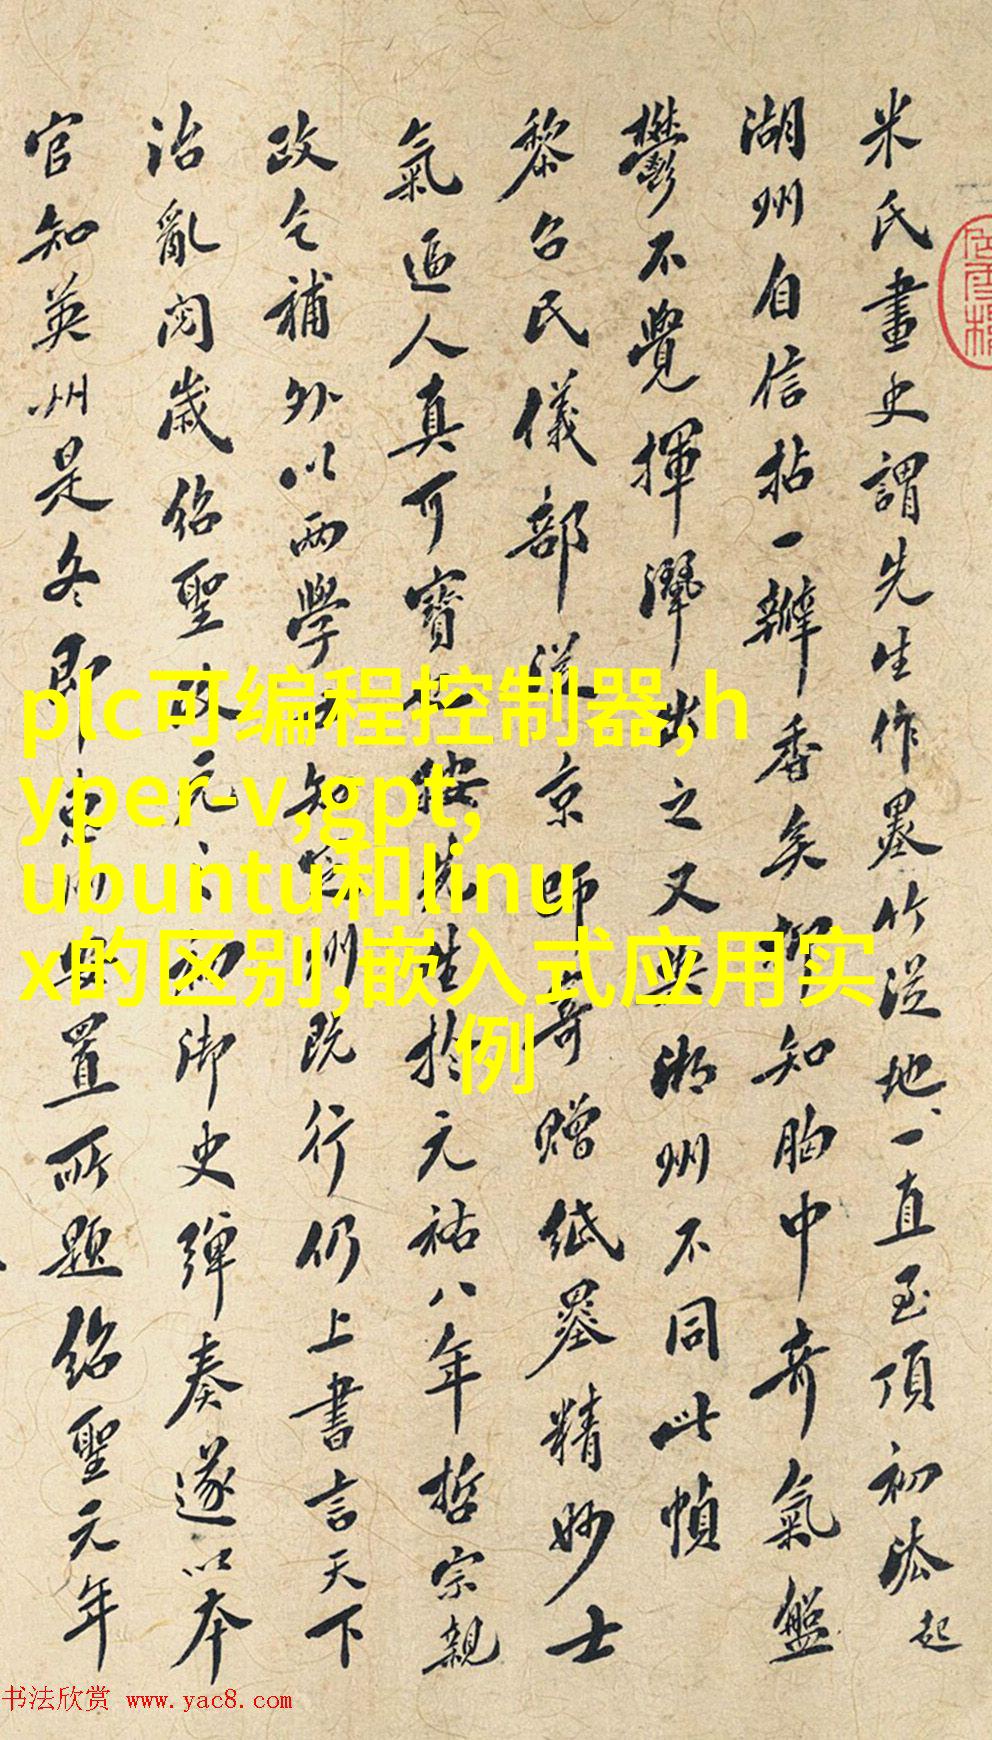 米氏畫史謂先生作墨竹從地一直至頂初法起
湖州自信拈一瓣香矣知胸中奇氣盤
鬱不覺揮灑出之又與湖州不同此幀
黎召民儀部京師寄贈紙墨精妙士
氣逼人真可寶也按先生於元祐八年哲宗親
政乞補外以兩學士知定州既行仍上書言天下
治亂閱歲紹聖改元之初御史彈奏遂以本
官知英州是冬即惠州安置所題紹聖元年
plc可编程控制器,h
yper-v,gpt,
ubuntu和linu
x的区别,嵌入式应用实
例
书法欣赏 www.yac8.com